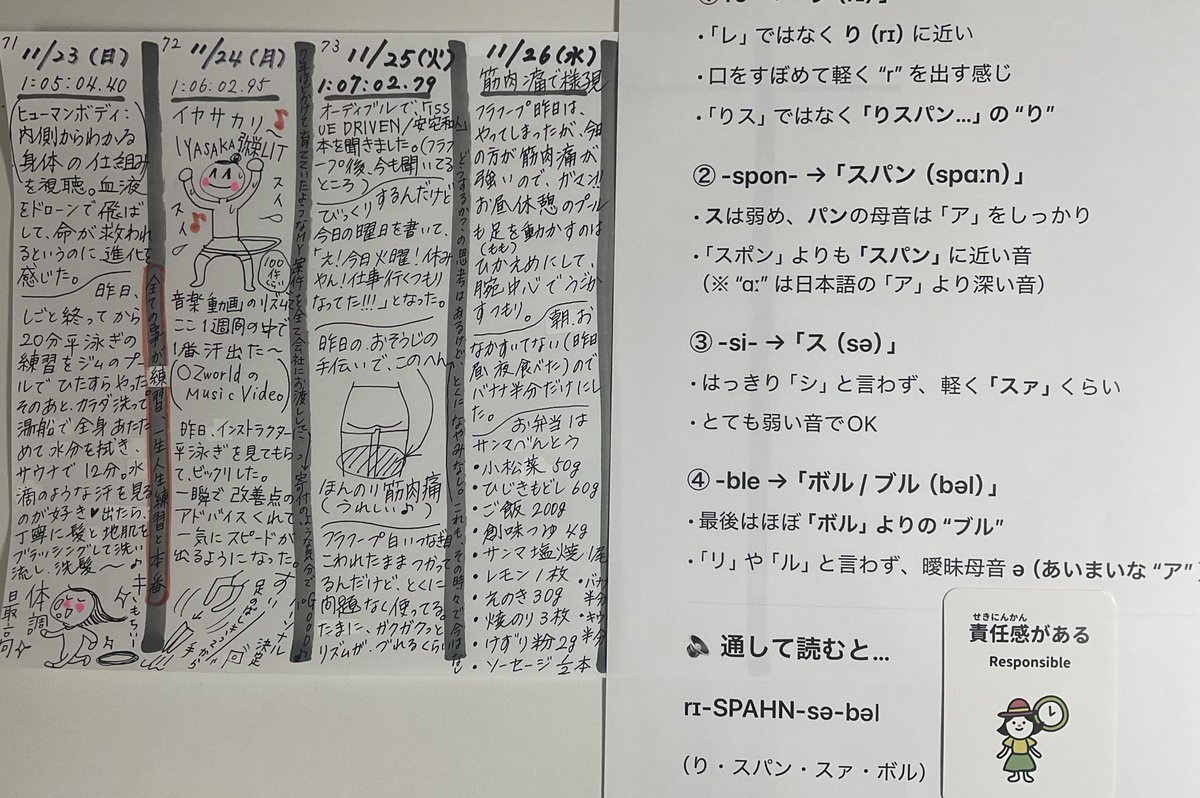 71
11/23(日)
1:05:04.40
ヒューマンボディ:
内側からわかる
身体の仕組み
を視聴。血液
をドローンで飛ば
して、命が救われ
るというのに進化を
感じた。
昨日、
しごと終ってから
20分平泳ぎの
練習をジムのプー
ルでひたすらやった。
そのあと、カラダ洗って
湯船で全身あたた
めて水分を拭き、
サウナで12分。水
滴のような汗を見る
のが好き♥出たら、
丁寧に髪と地肌を
ブラッシングして洗い
流し、洗髪〜♪
キもちぃ〜
体調
日最高
全ての事が練習、一生人生練習と本番
72
11/24(月)
1:06:02.95
イヤサカリ〜♪
IYASAKA弥栄LIT
スイ
スイ
音楽動画のリズムで
ここ1週間の中で
1番汗出た〜
OZworldの
Music Video
昨日、インストラクター
平泳ぎを見てもらっ
て、ビックリした。
一瞬で改善点の
アドバイスくれて
一気にスピードが
出るようになった。
73
11/25(火)
1:07:02.79
オーディブルで、「ISS
UE DRIVEN/安宅和人」
本を聞きました。(フラフ
ープ後、今も聞いてる
ところ)
びっくりするんだけど
今日の曜日を書いて、
「え!今日火曜!休み
やん!仕事行くつもり
なってた!!!」となった。
昨日の、おそうじの
手伝いで、このへん
ほんのり筋肉痛
(うれしい♪)
フラフープ白いつなぎ
こわれたままつかって
るんだけど、とくに
問題なく使ってる。
たまに、ガクガクっと
リズムが、ブれるくらい
11/26(水)
筋肉痛で様子見
フラフープ昨日は、
やってしまったが、今日
の方が筋肉痛が
強いので、ガマン!!
お昼休憩のプール
も足を動かすのは
(もも)
ひかえめにして、
腕中心でうごか
すつもり。
朝、お
なかすいてない(昨日
昼夜食べた)ので
バナナ半分だけにし
た。
お弁当は
サンマべんとう
・小松菜 50g
・ひじきもどし 60g
・ご飯 200g
・創味つゆ 4g
・サンマ塩焼 1尾
・レモン1枚
・バナナ半分
・えのき30g
・焼のり3枚
・けずり粉2g
・ソーセージ 1/2本
・「レ」ではなく り (rɪ) に近い
・口をすぼめて軽く “r” を出す感じ
・「りス」ではなく「りスパン...」の “り”
② -spon- → 「スパン (spɑːn)」
・スは弱め、パンの母音は「ア」をしっかり
・「スポン」よりも「スパン」に近い音
(※ “ɑː” は日本語の「ア」より深い音)
③ -si- → 「ス (sə)」
・はっきり「シ」と言わず、軽く「スァ」くらい
・とても弱い音でOK
④ -ble → 「ボル / ブル (bəl)」
・最後はほぼ「ボル」よりの “ブル”
・「リ」や「ル」と言わず、曖昧母音 ə (あいまいな “ア”
🔊 通して読むと...
rɪ-SPAHN-sə-bəl
(り・スパン・スァ・ボル)
せきにんかん
責任感がある
Responsible